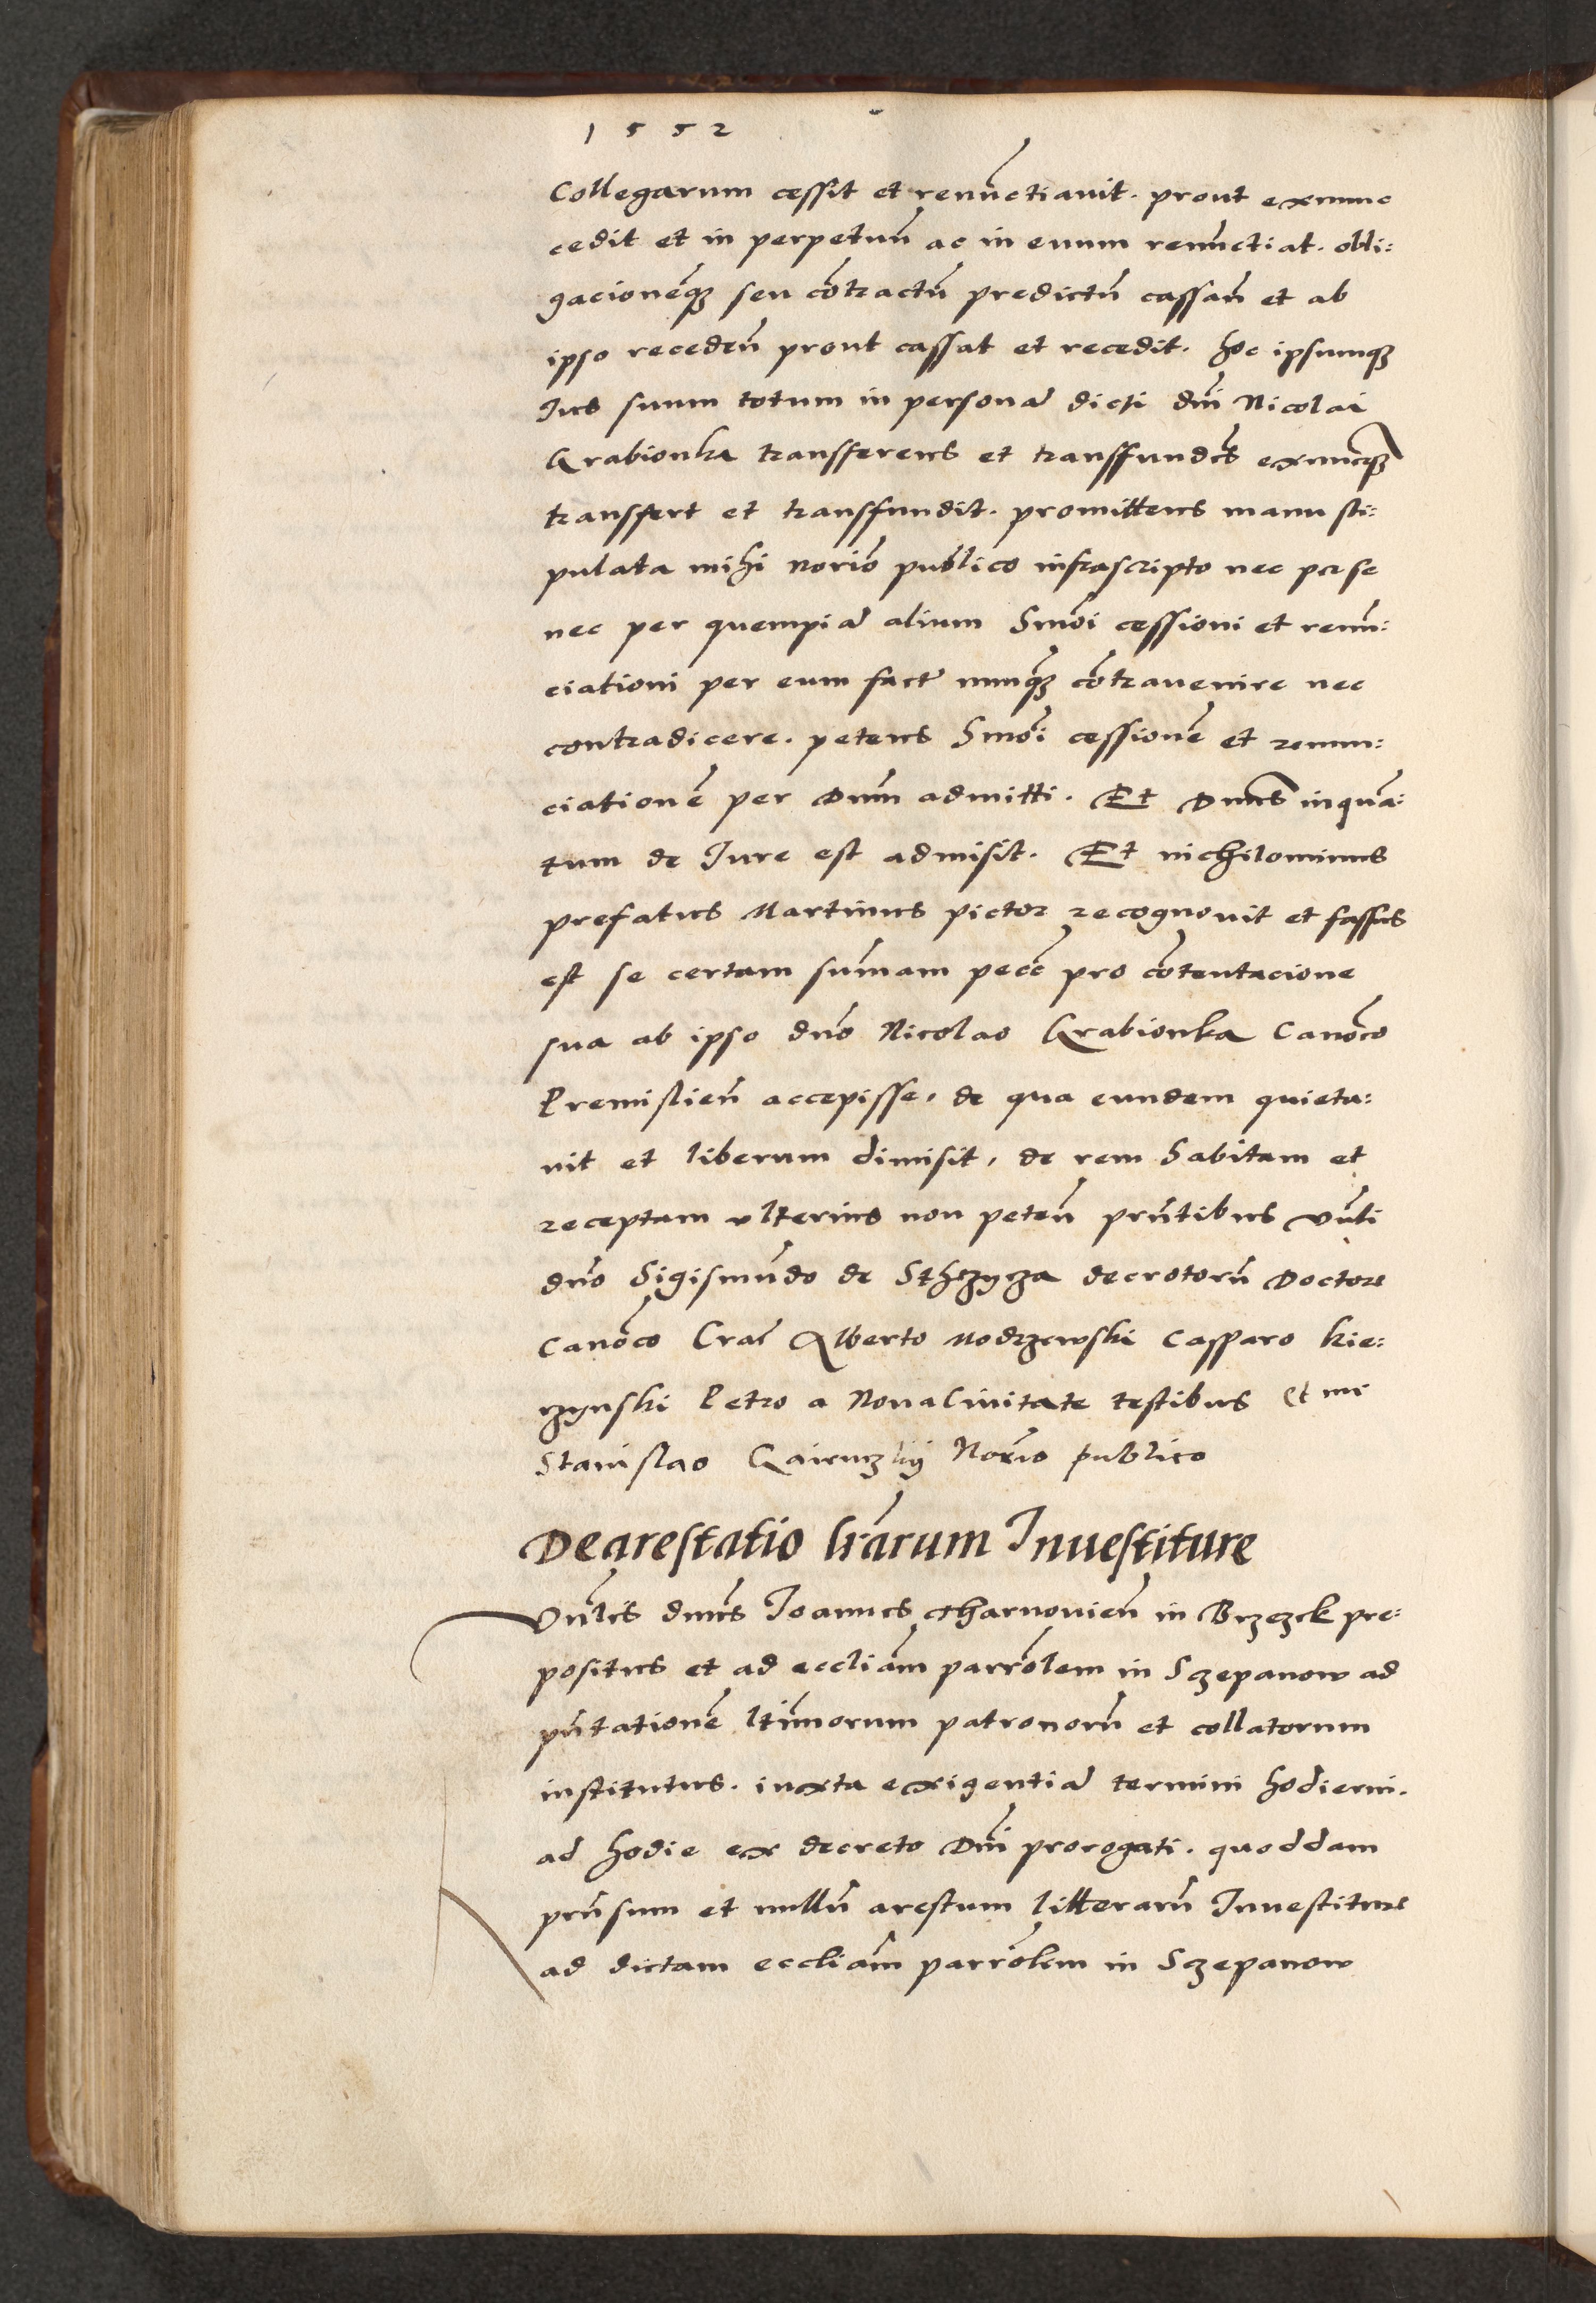 1552
Collegarum cessit et renu̅ctiauit. prout exnunc
cedit et in perpetuu̅ ac in euum renu̅ctiat. obli:
gacione̅qꝫ seu co̅tractu̅ predictu̅ cassan̅ et ab
ipso receden̅ prout cassat et recedit. hoc ipsumqꝫ
Ius suum totum in persona̅ dicti dn̅i Nicolai
Grabionka transferens et transffunde̅s exnuncqꝫ
transffert et transffundit. promittens manu sti:
pulata mihi no̅rio publico infrascripto nec per se
nec per quempia̅ alium hmo̅i cessioni et renu̅:
ciationi per eum facte nunqꝫ co̅trauenire nec
contradicere. petens hmo̅i cessione̅ et renun:
ciatione̅ per Dnu̅m admitti. Et Dn̅us inqua̅:
tum de Iure est admisit. Et nichilominus
prefatus Martinus pictor recognouit et fassus
est se certam su̅mam pecc̅ pro co̅tentacione
sua ab ipso dn̅o Nicolao Grabionka Cano̅co
Premislien̅ accepisse, de qua eundem quieta:
uit et liberum dimisit, de rem habitam et
receptam vlterius non peten̅ prn̅tibus vn̅li
dn̅o Sigismu̅do de Sthezycza decretoru̅ Doctore
Cano̅co Crac̅ Alberto modrzewski Casparo kie:
rzynski Petro a Noua Ciuitate testibus et mi
Stanislao No̅rio publico
Dearestatio lr̅arum Inuestiture
Vn̅lis dn̅us Ioannes tharnouien̅ in Brzezek pre:
positus et ad eccli̅am parro̅lem in Sczepanow ad
pn̅tatione̅ lti̅morum patronoru̅ et collatorum
institutus. iuxta exigentia̅ termini hodierni.
ad hodie ex decreto Dn̅i prorogati. quoddam
prn̅sum et nullu̅ arestum litteraru̅ Inuestiture
ad dictam eccli̅am parro̅lem in Sczepanow